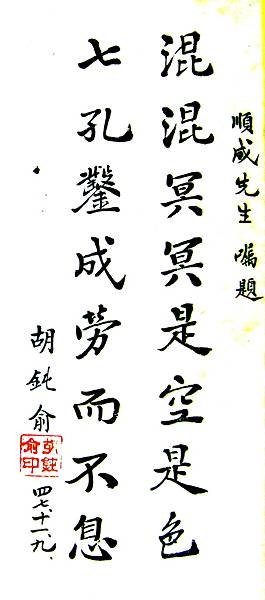 順成先生囑題
混混冥冥是空是色
七孔鑿成勞而不息
胡鈍俞
胡鈍俞印
四七、十一、九、